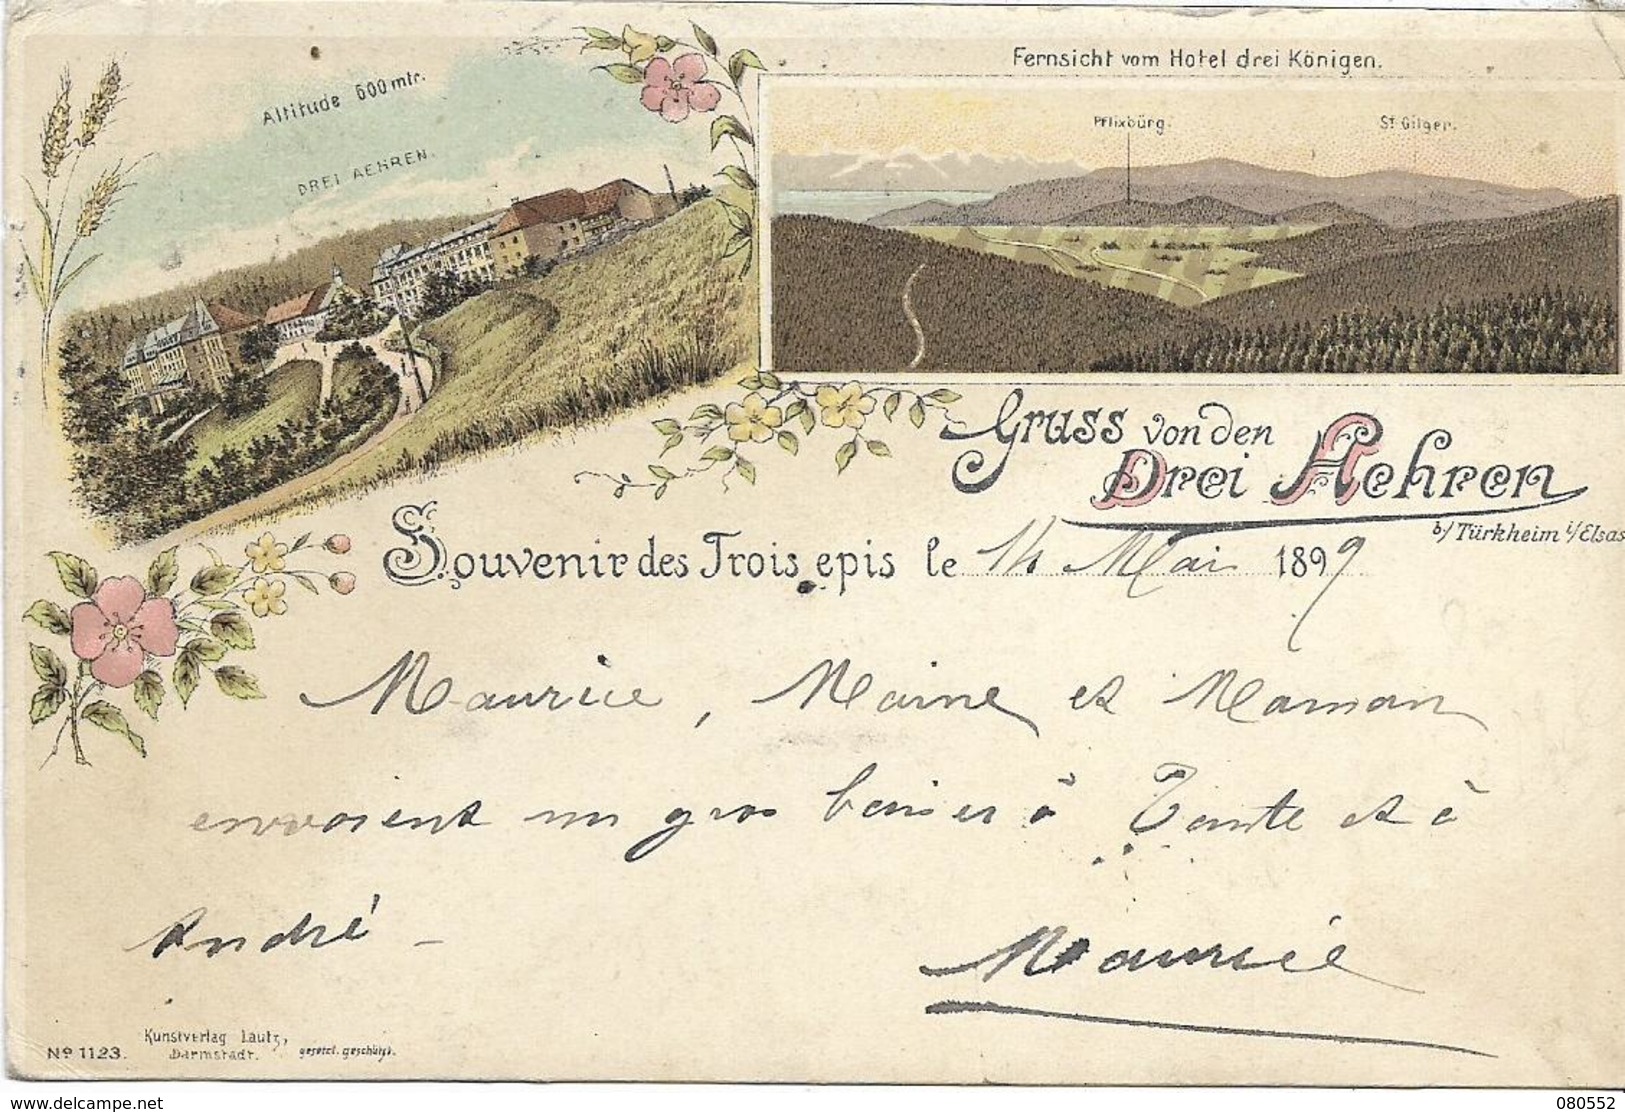 Fernsicht vom Hotel drei Königen.
Altitude 600 mtr.
Pflixbürg.
St Gilger.
DREI AEHREN.
Gruss von den
Drei Aehren
b/Türkheim i/Elsas
Souvenir des Trois epis le 14 Mai 1899
Maurice, Maine et Maman
envoient un gros baiser à Tante et à
André -
Maurice
Kunstverlag Lautz,
No 1123. Darmstadt. gesetzl. geschützt.
delcampe.net
080552